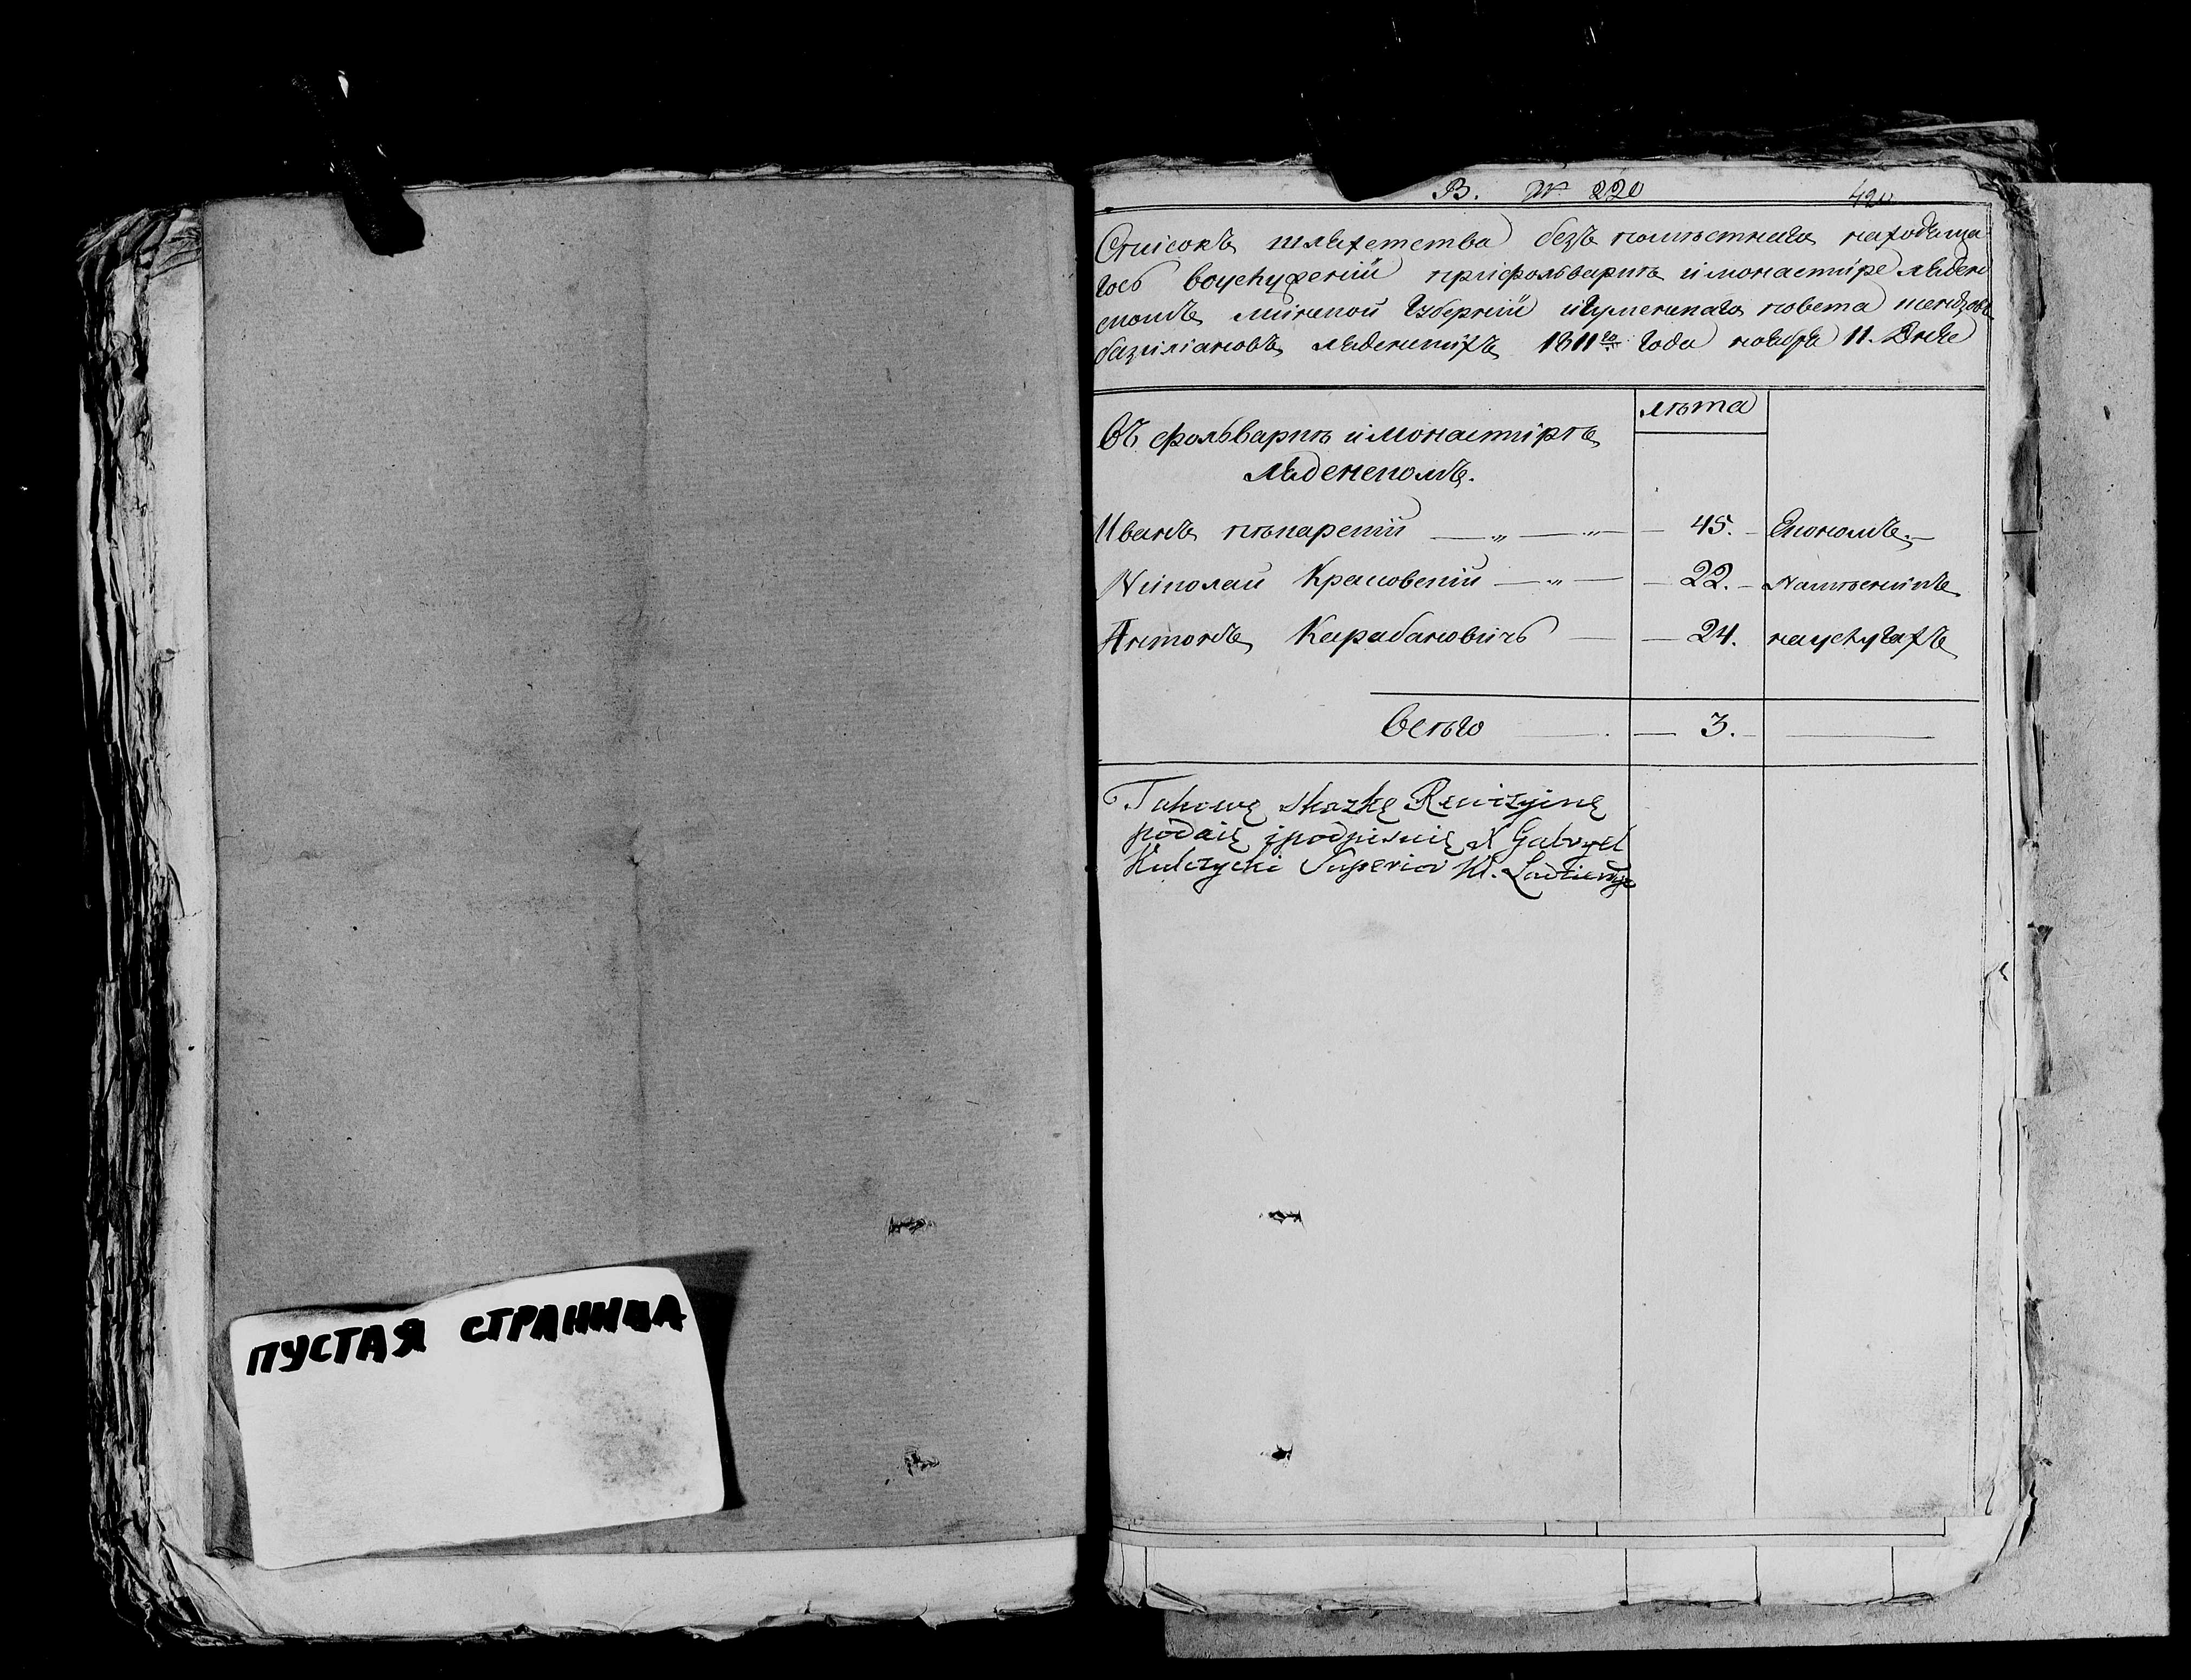 В. № 220
420
Списокъ шляхетства безъ помѣстнаго находяща
гось воуслуженій прифольваркѣ и монастире Ляденс
комъ минской губерній игуменскаго повета ксендзовъ
базиліановъ Ляденскихъ 1811го года ноября 11. Дня
лѣта
Въ фольваркѣ и монастирѣ
Ляденскомъ.
Иванъ пѣкарскій — „ — „ — 45. — Економъ. —
Николай Красовскій — „ — — 22. — Намѣсникъ
Антонъ Карабановичъ — — 24. науслугахъ
Всѣго — 3. —
Takowę skazkę Rewizyinę
podaię ipodpisuię X Gabryel
Kulczycki Superior Kl.
ПУСТАЯ СТРАНИЦА